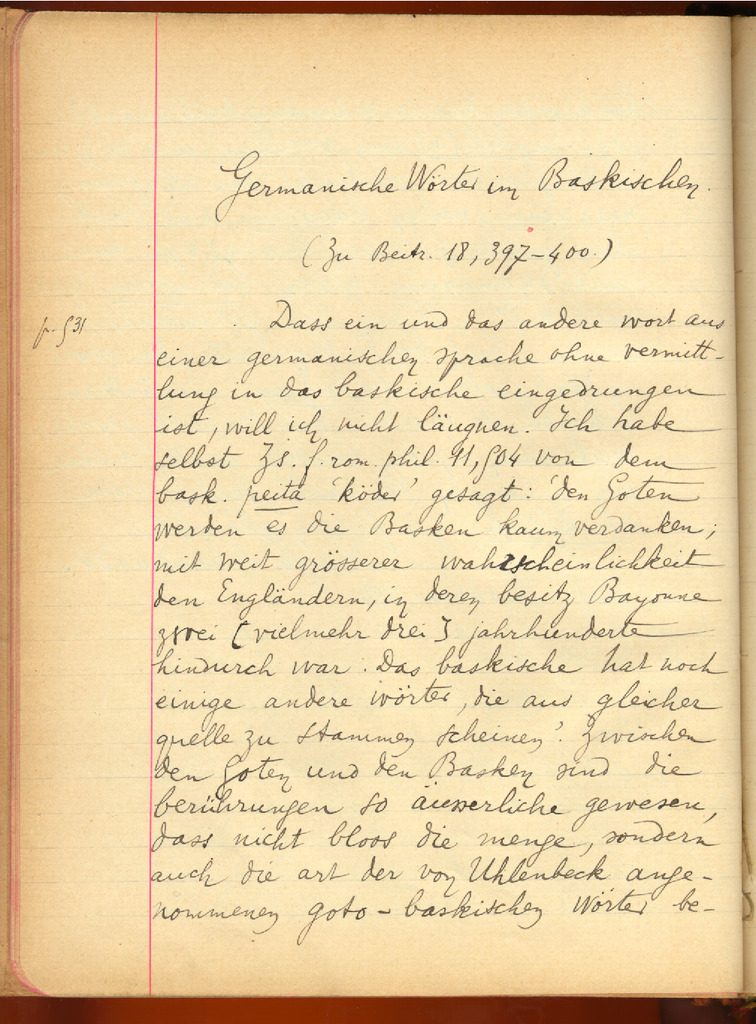 Germanische Wörter im Baskischen.
(Zu Beitr. 18, 397-400.)
p. 531
Dass ein und das andere wort aus
einer germanischen sprache ohne vermitt-
lung in das baskische eingedrungen
ist, will ich nicht läugnen. Ich habe
selbst Zs. f. rom. phil. 11, 504 von dem
bask. peita 'köder' gesagt: 'den Goten
werden es die Basken kaum verdanken;
mit weit grösserer wahrscheinlichkeit
den Engländern, in deren besitz Bayonne
zwei [vielmehr drei] jahrhunderte
hindurch war. Das baskische hat noch
einige andere wörter, die aus gleicher
quelle zu stammen scheinen'. Zwischen
den Goten und den Basken sind die
berührungen so äusserliche gewesen,
dass nicht bloos die menge, sondern
auch die art der von Uhlenbeck ange-
nommenen goto-baskischen Wörter be-